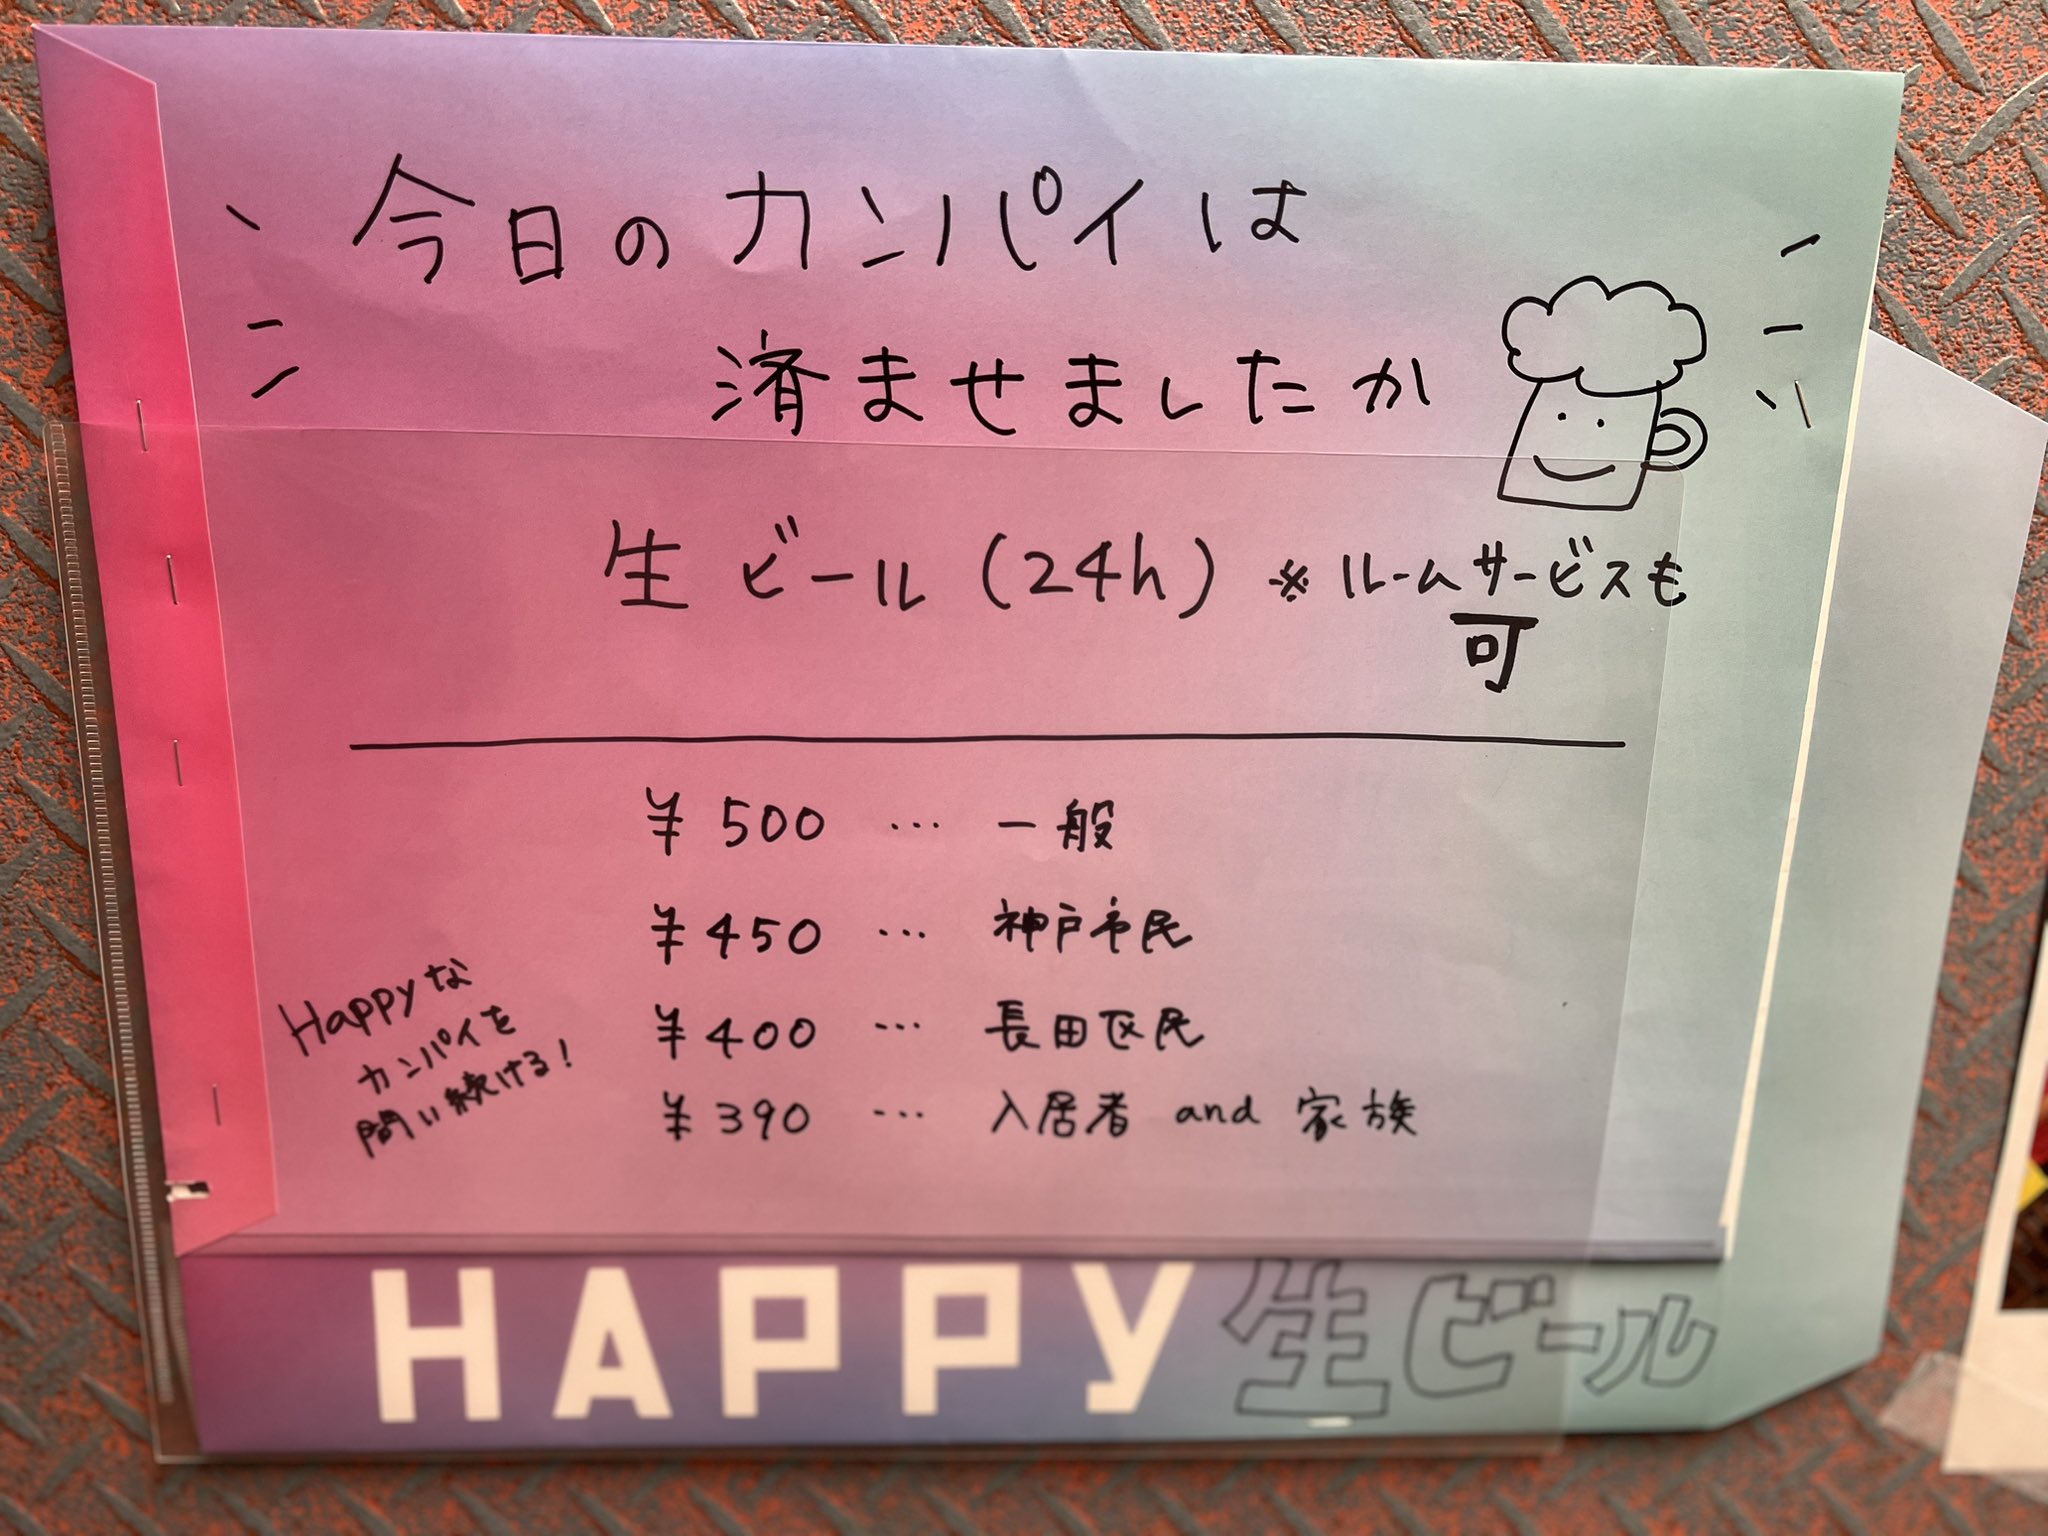 今日のカンパイは
済ませましたか
生ビール(24h) ※ルームサービスも
可
¥500 … 一般
¥450 … 神戸市民
¥400 … 長田区民
¥390 … 入居者 and 家族
Happyな
カンパイを
問い続ける!
HAPPY生ビール